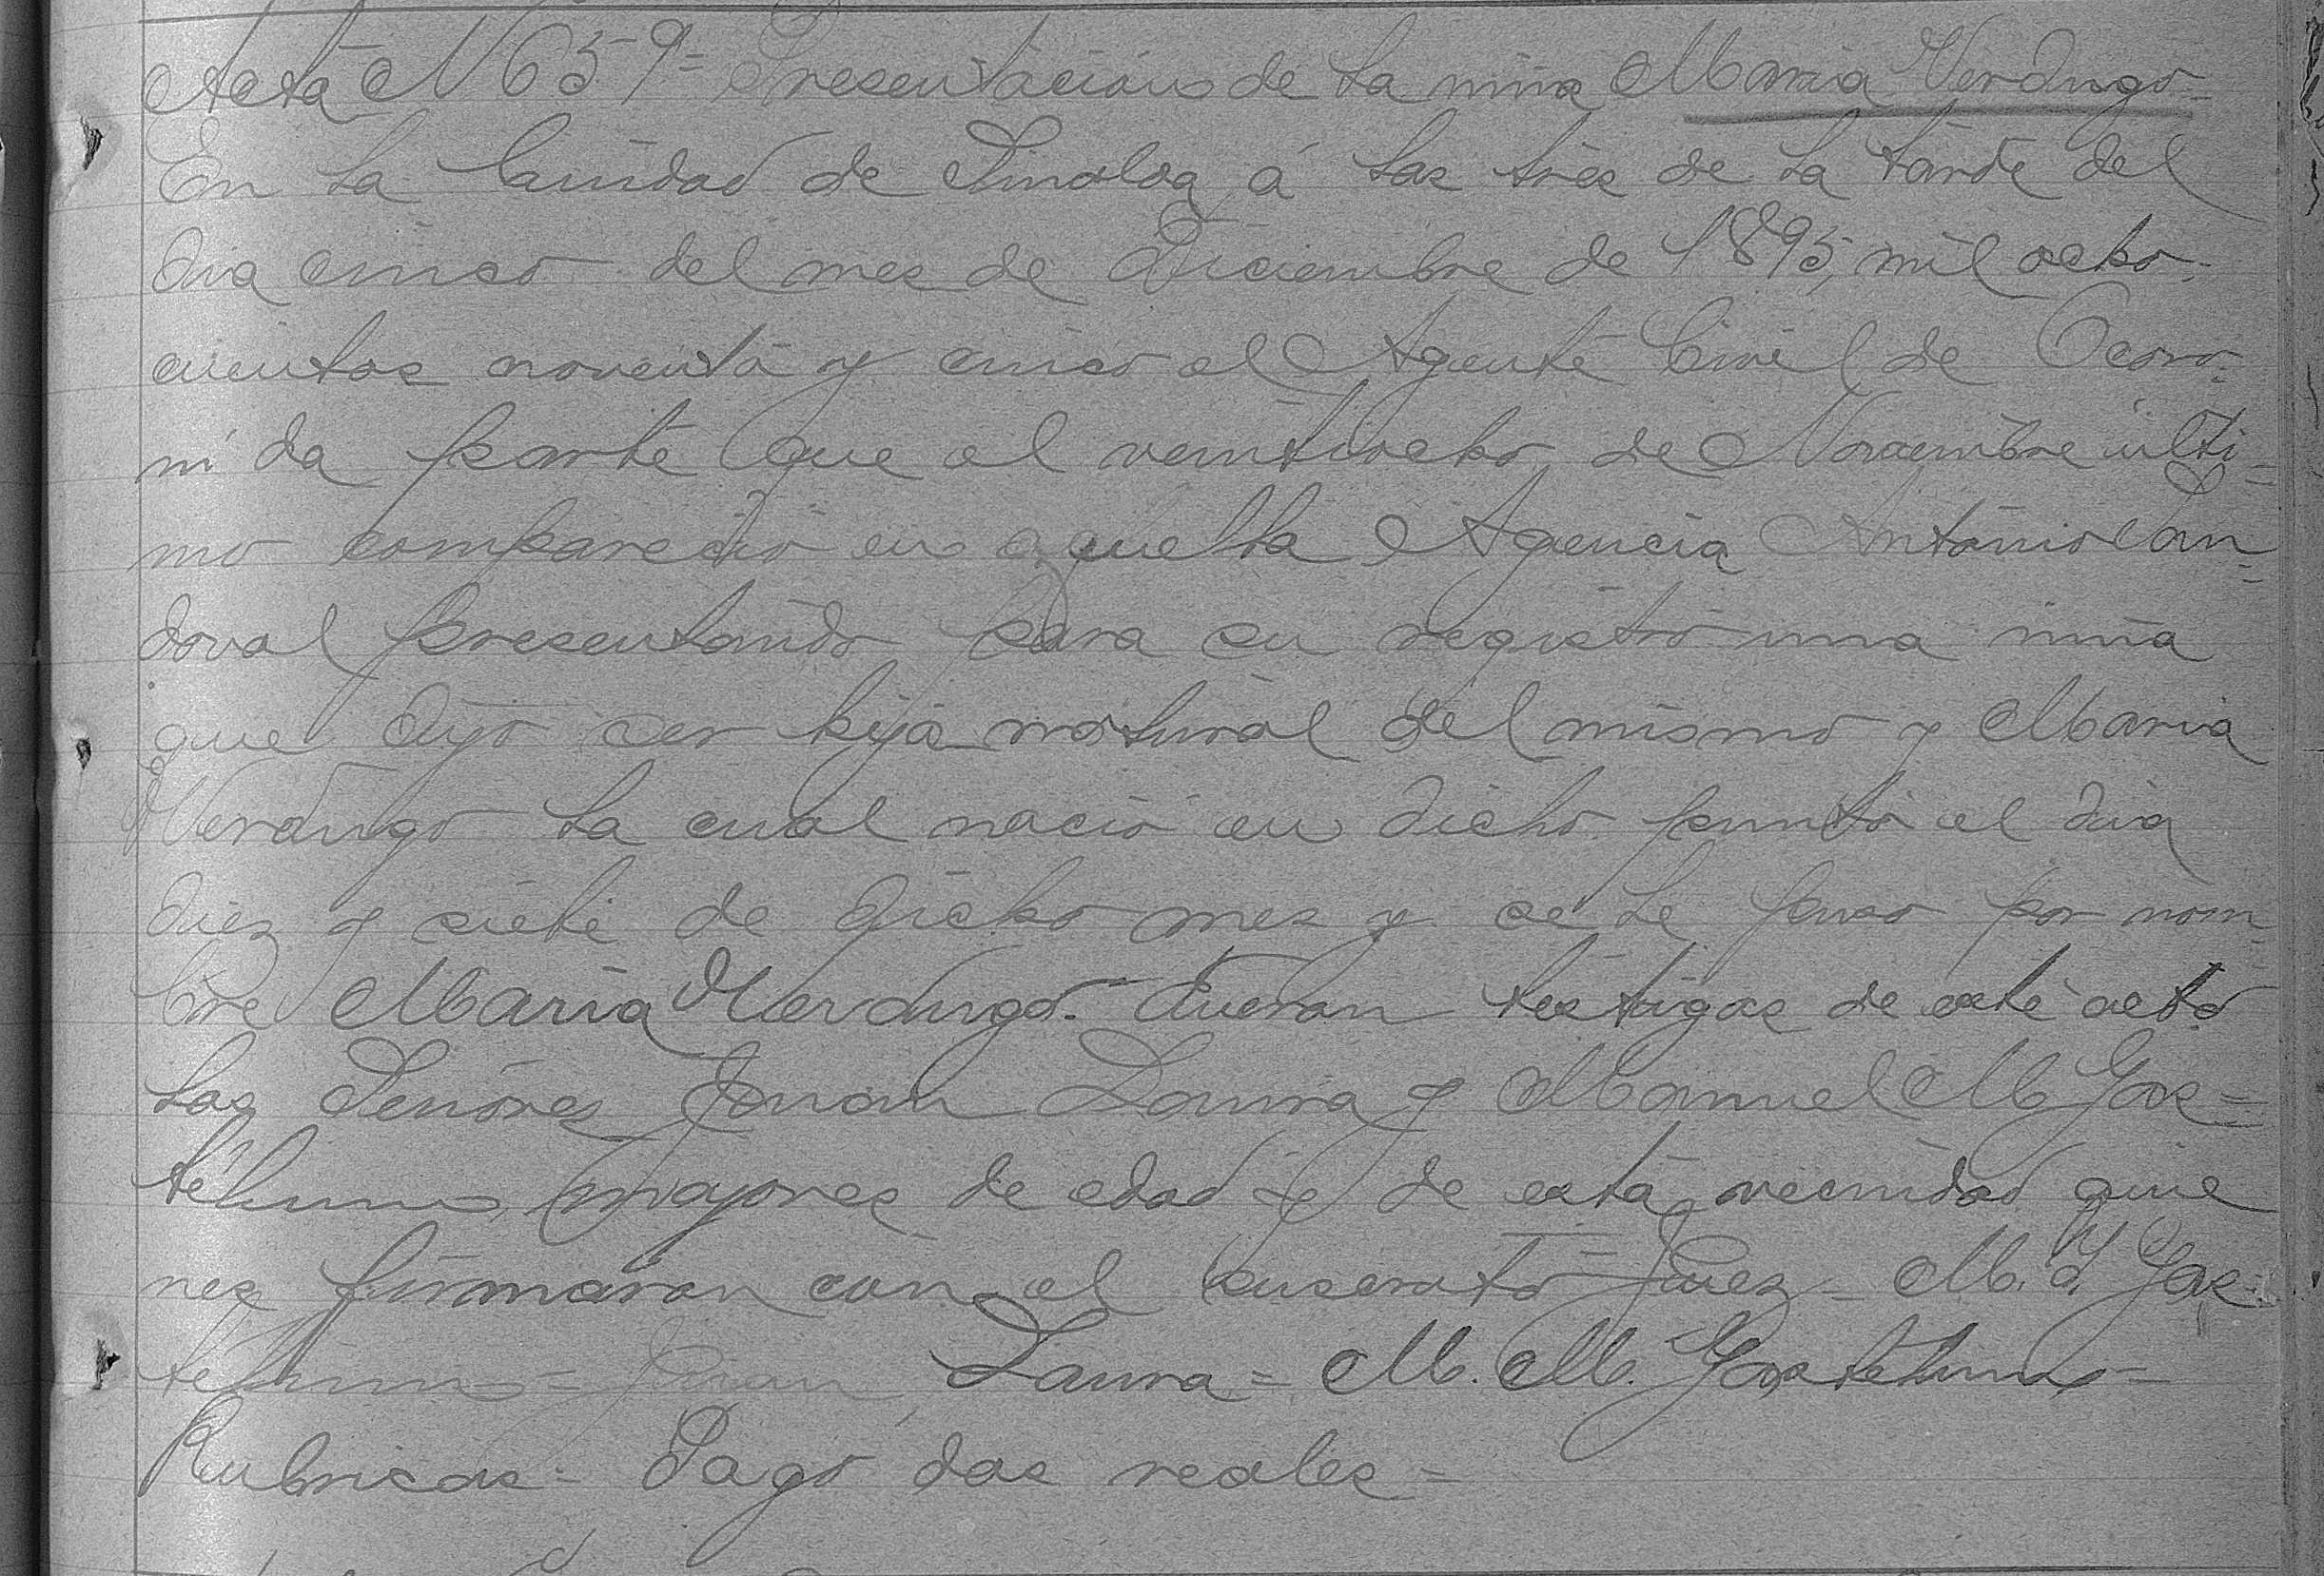 Acta N 659 = Presentacion de la niña Maria Verdugo =
En la Ciudad de Sinaloa á las tres de la tarde del
dia cinco del mes de Diciembre de 1895, mil ocho-
cientos noventa y cinco el Agente Civil de Ocoro=
ni da parte que el veintiocho de Noviembre ulti=
mo compareció en aquella Agencia Antonio San=
doval presentando para su registro una niña
que dijo ser hija natural del mismo y Maria
Verdugo la cual nació en dicho punto el dia
diez y siete de dicho mes y se le puso por nom=
bre Maria Verdugo. Fueron testigos de este acto
los Señores Juan Laura y Manuel M. Gas=
télum, mayores de edad y de esta vecindad quie
nes firmaron con el suscrito Juez = M. Y. Gas=
télum = Juan Laura = M. M. Gastelum =
Rubricas = Pagó dos reales =